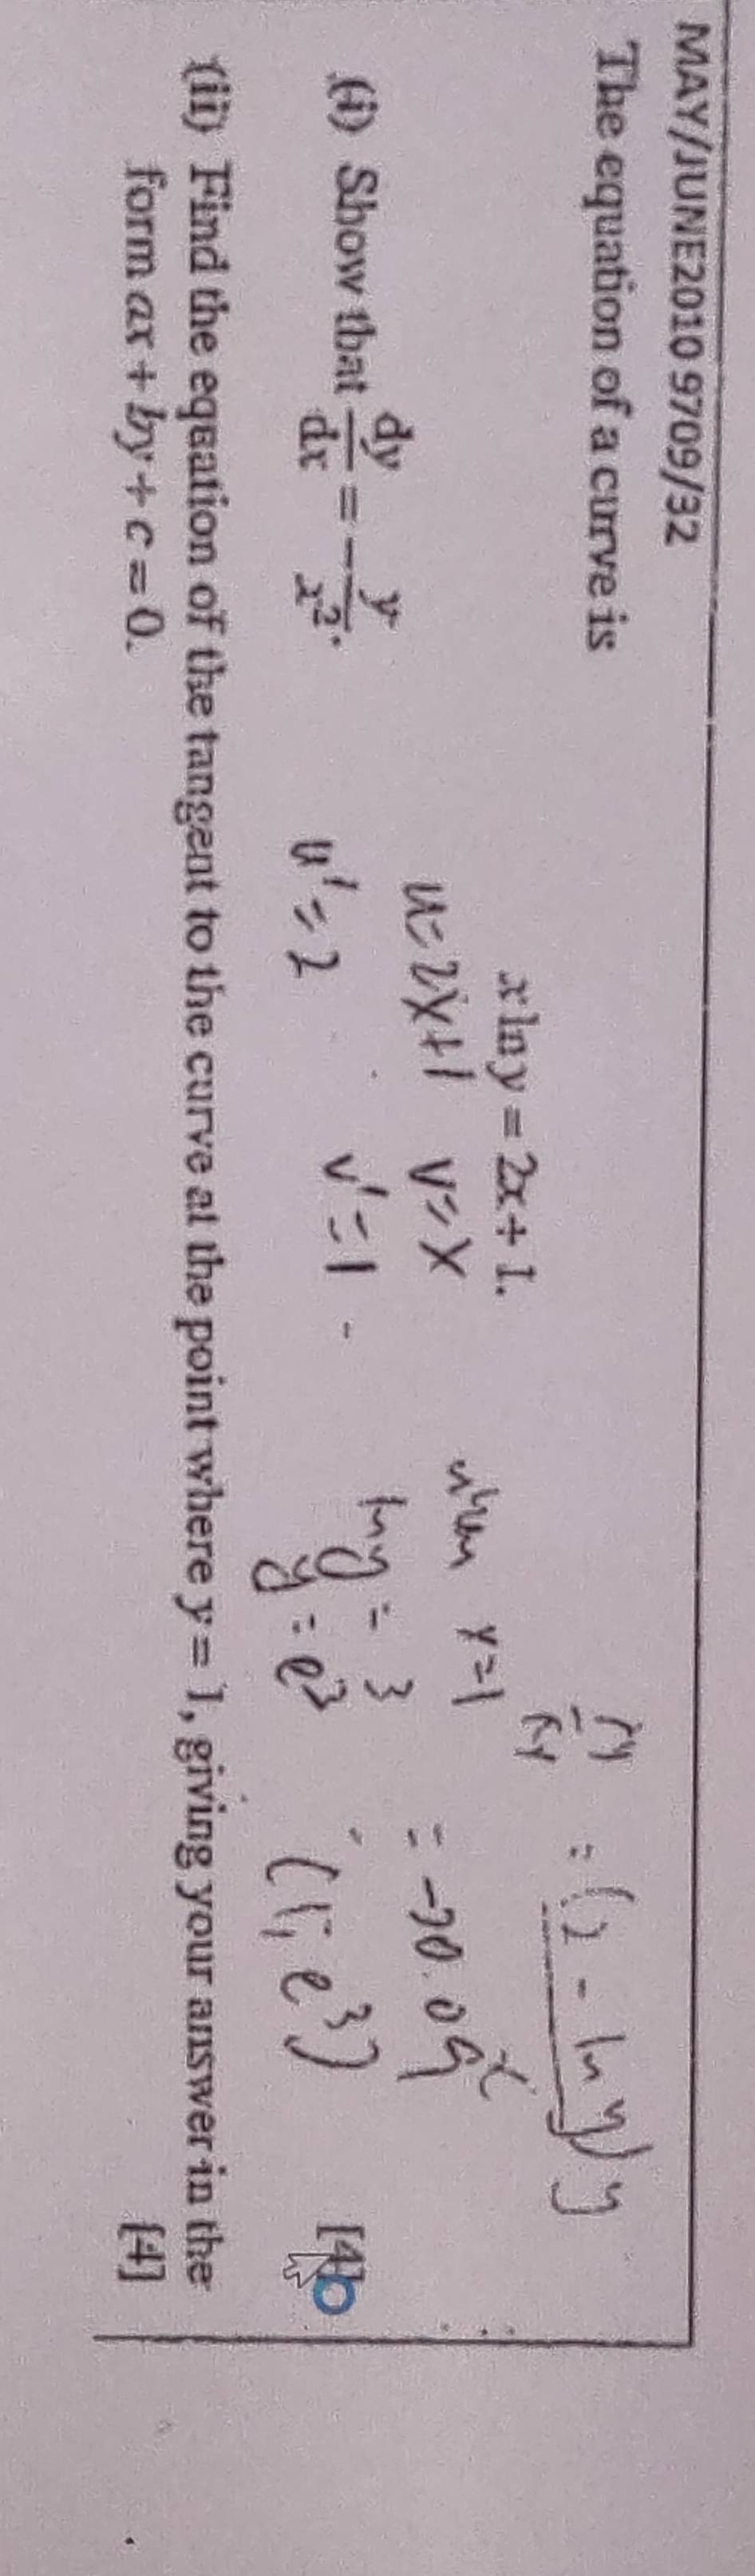 MAY/JUNE2010 9709/32
The equation of a curve is
x ln y = 2x + 1.
u = 2x+1 v = x
u' = 2 v' = 1
= (2 - ln y) y
x
when x=1
ln y = 3
y = e³
= -20.09
(1, e³)
(i) Show that dy/dx = - y/x². [4]
(ii) Find the equation of the tangent to the curve at the point where y = 1, giving your answer in the
form ax + by + c = 0. [4]